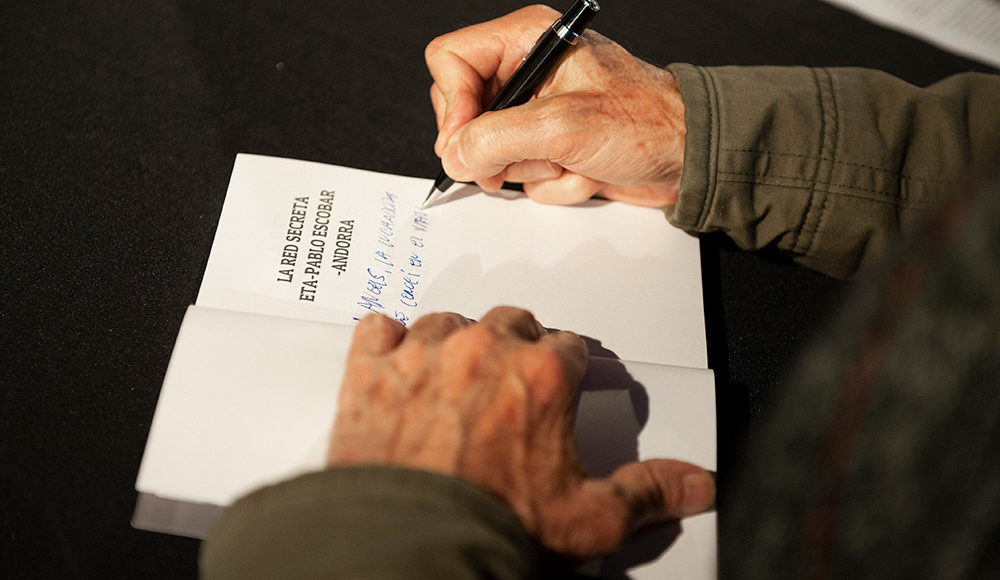 LA RED SECRETA
ETA-PABLO ESCOBAR
-ANDORRA
ANGELS, LA LUCHADORA
CONOCÍ EN EL